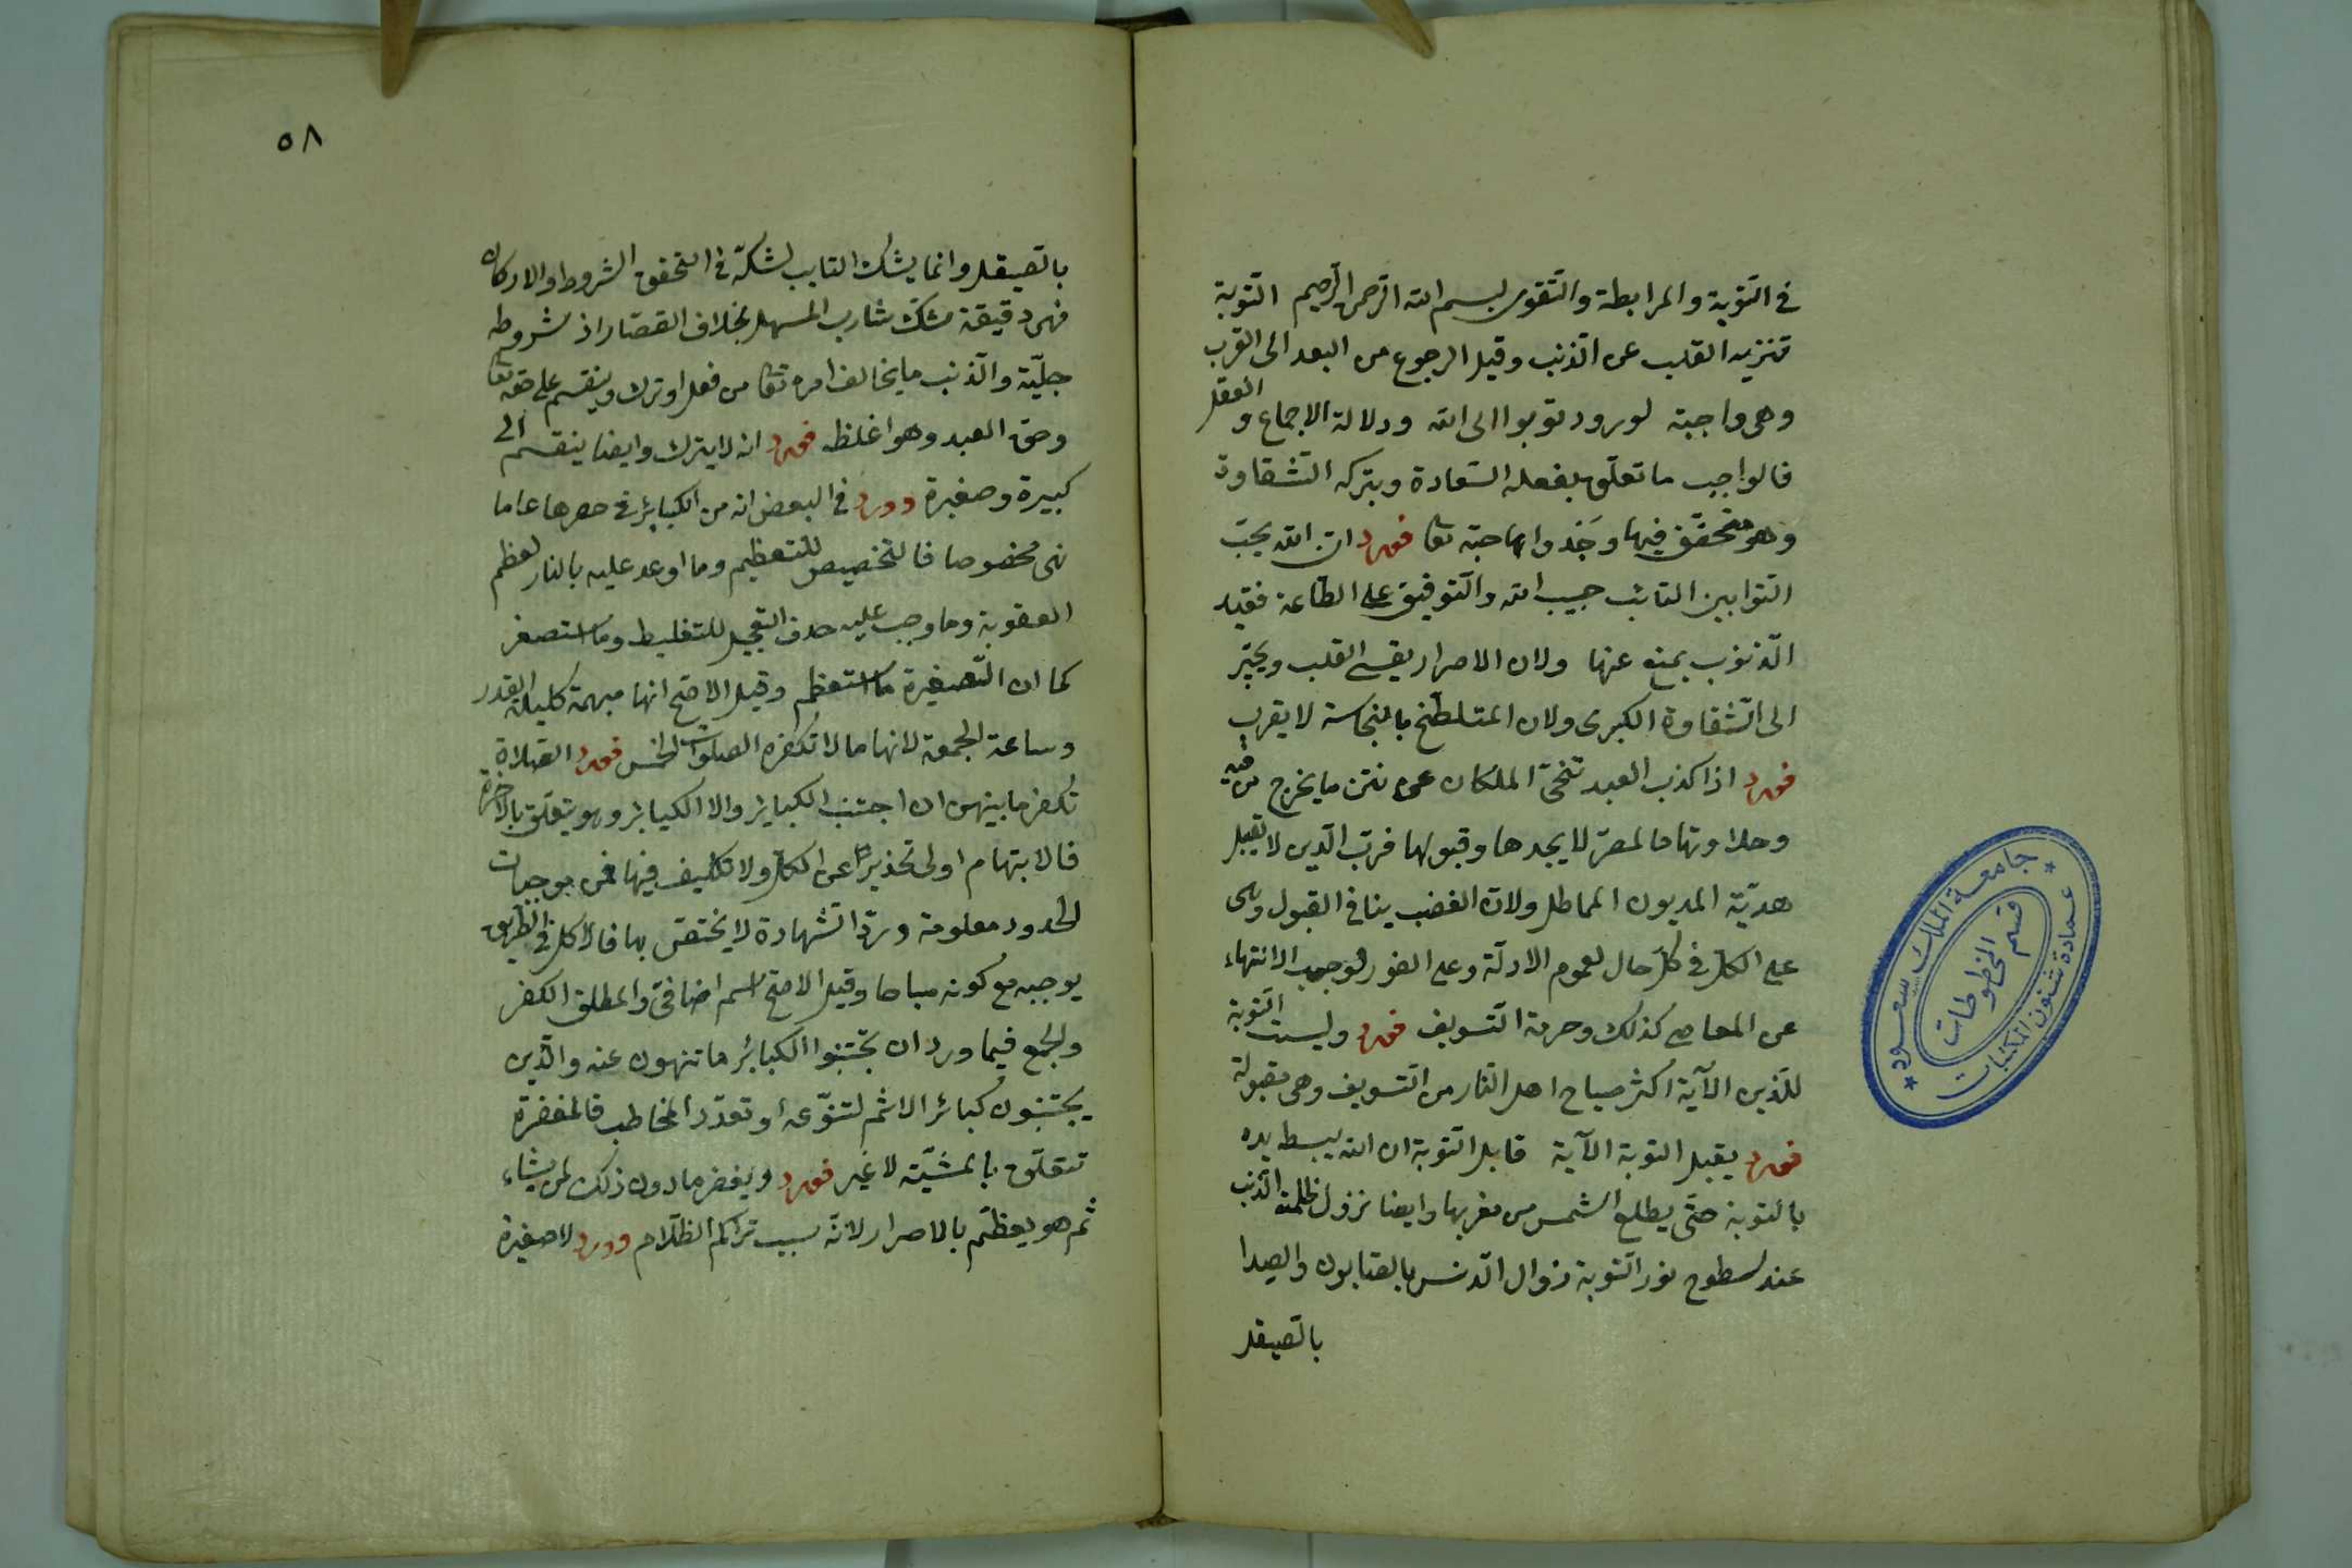 في التوبة والمرابطة والتقوى بسم الله الرحمن الرحيم التوبة
تنزيه القلب عن الذنب وقيل الرجوع من البعد الى القرب
وهى واجبة لورود توبوا الى الله ودلالة الاجماع و العقل
فالواجب ما تعلق بفعله السعادة وبتركه الشقاوة
وهو متحقق فيها وجدوا بها حبه تعا فورد ان الله يحب
التوابين التائب حبيب الله والتوفيق على الطاعة فقيد
الذنوب يمنع عنها ولان الاصرار يقسى القلب ويجر
الى الشقاوة الكبرى ولان المتلطخ بالنجاسة لا يقرب
فورد اذا كذب العبد تنحى الملكان عن نتن ما يخرج من فيه
وحلاوتها فالمصر لا يجدها وقبولها فرب الدين لا يقبل
هدية المديون المماطل ولان الغضب ينافى القبول وهى
على الكل فى كل حال لعموم الادلة وعلى الفور لوجوب الانتهاء
عن المعاصى كذلك وحرمة التسويف فورد وليست التوبة
للذين الآية اكثر صياح اهل النار من التسويف وهى مقبولة
فورد يقبل التوبة الآية قابل التوبة ان الله يبسط يده
بالتوبة حتى يطلع الشمس من مغربها وايضا تزول ظلمة الذنب
عند سطوح نور التوبة زوال الدنس بالصابون والصدا
بالصيقل
جامعة الملك سعود
عمادة شئون المكتبات
قسم المخطوطات
٥٨
بالصيقل وانما يشك التايب لشكه فى التحقق الشروط والاركان
فهى دقيقة كشك شارب المسهل بخلاف القصار اذ شروطه
جلية والذنب ما يخالف امره تعا من فعل او ترك وينقسم على حقه تعا
وحق العبد وهو اغلظ فورد انه لا يترك وايضا ينقسم الى
كبيرة وصغيرة وورد فى البعض انه من الكبائر فى حصرها عاما
نهى مخصوصا فالتخصيص للتعظيم وما اوعد عليه بالنار لعظم
العقوبة وما وجب عليه حد فى التعجيل للتغليظ وما استصغر
كما ان الصغيرة ما استعظم وقيل الاصح انها مبهمة كليلة القدر
وساعة الجمعة لانها ما لا تكفره الصلوات الخمس فورد الصلاة
تكفر ما بينهن ان اجتنب الكبائر والا الكبائر وهو يتعلق بالآخرة
فالابتهام اولى تحذيرا عن الكل ولا تكليف فيها فمن بوجبات
الحدود معلومة ورد الشهادة لا يختص بها فالاكل فى الطريق
يوجبه مع كونه مباحا وقيل الاصح اسم اضافى والمطلق الكفر
والجمع فيما ورد ان تجتنبوا الكبائر ما تنهون عنه والذين
يجتنبون كبائر الاثم لتنوعه او تعدد المخاطب فالمغفرة
تتعلق بالمشية لا غير فورد ويغفر ما دون ذلك لمن يشاء
ثم هو يعظم بالاصرار لانه سبب تراكم الظلام وورد لا صغيرة